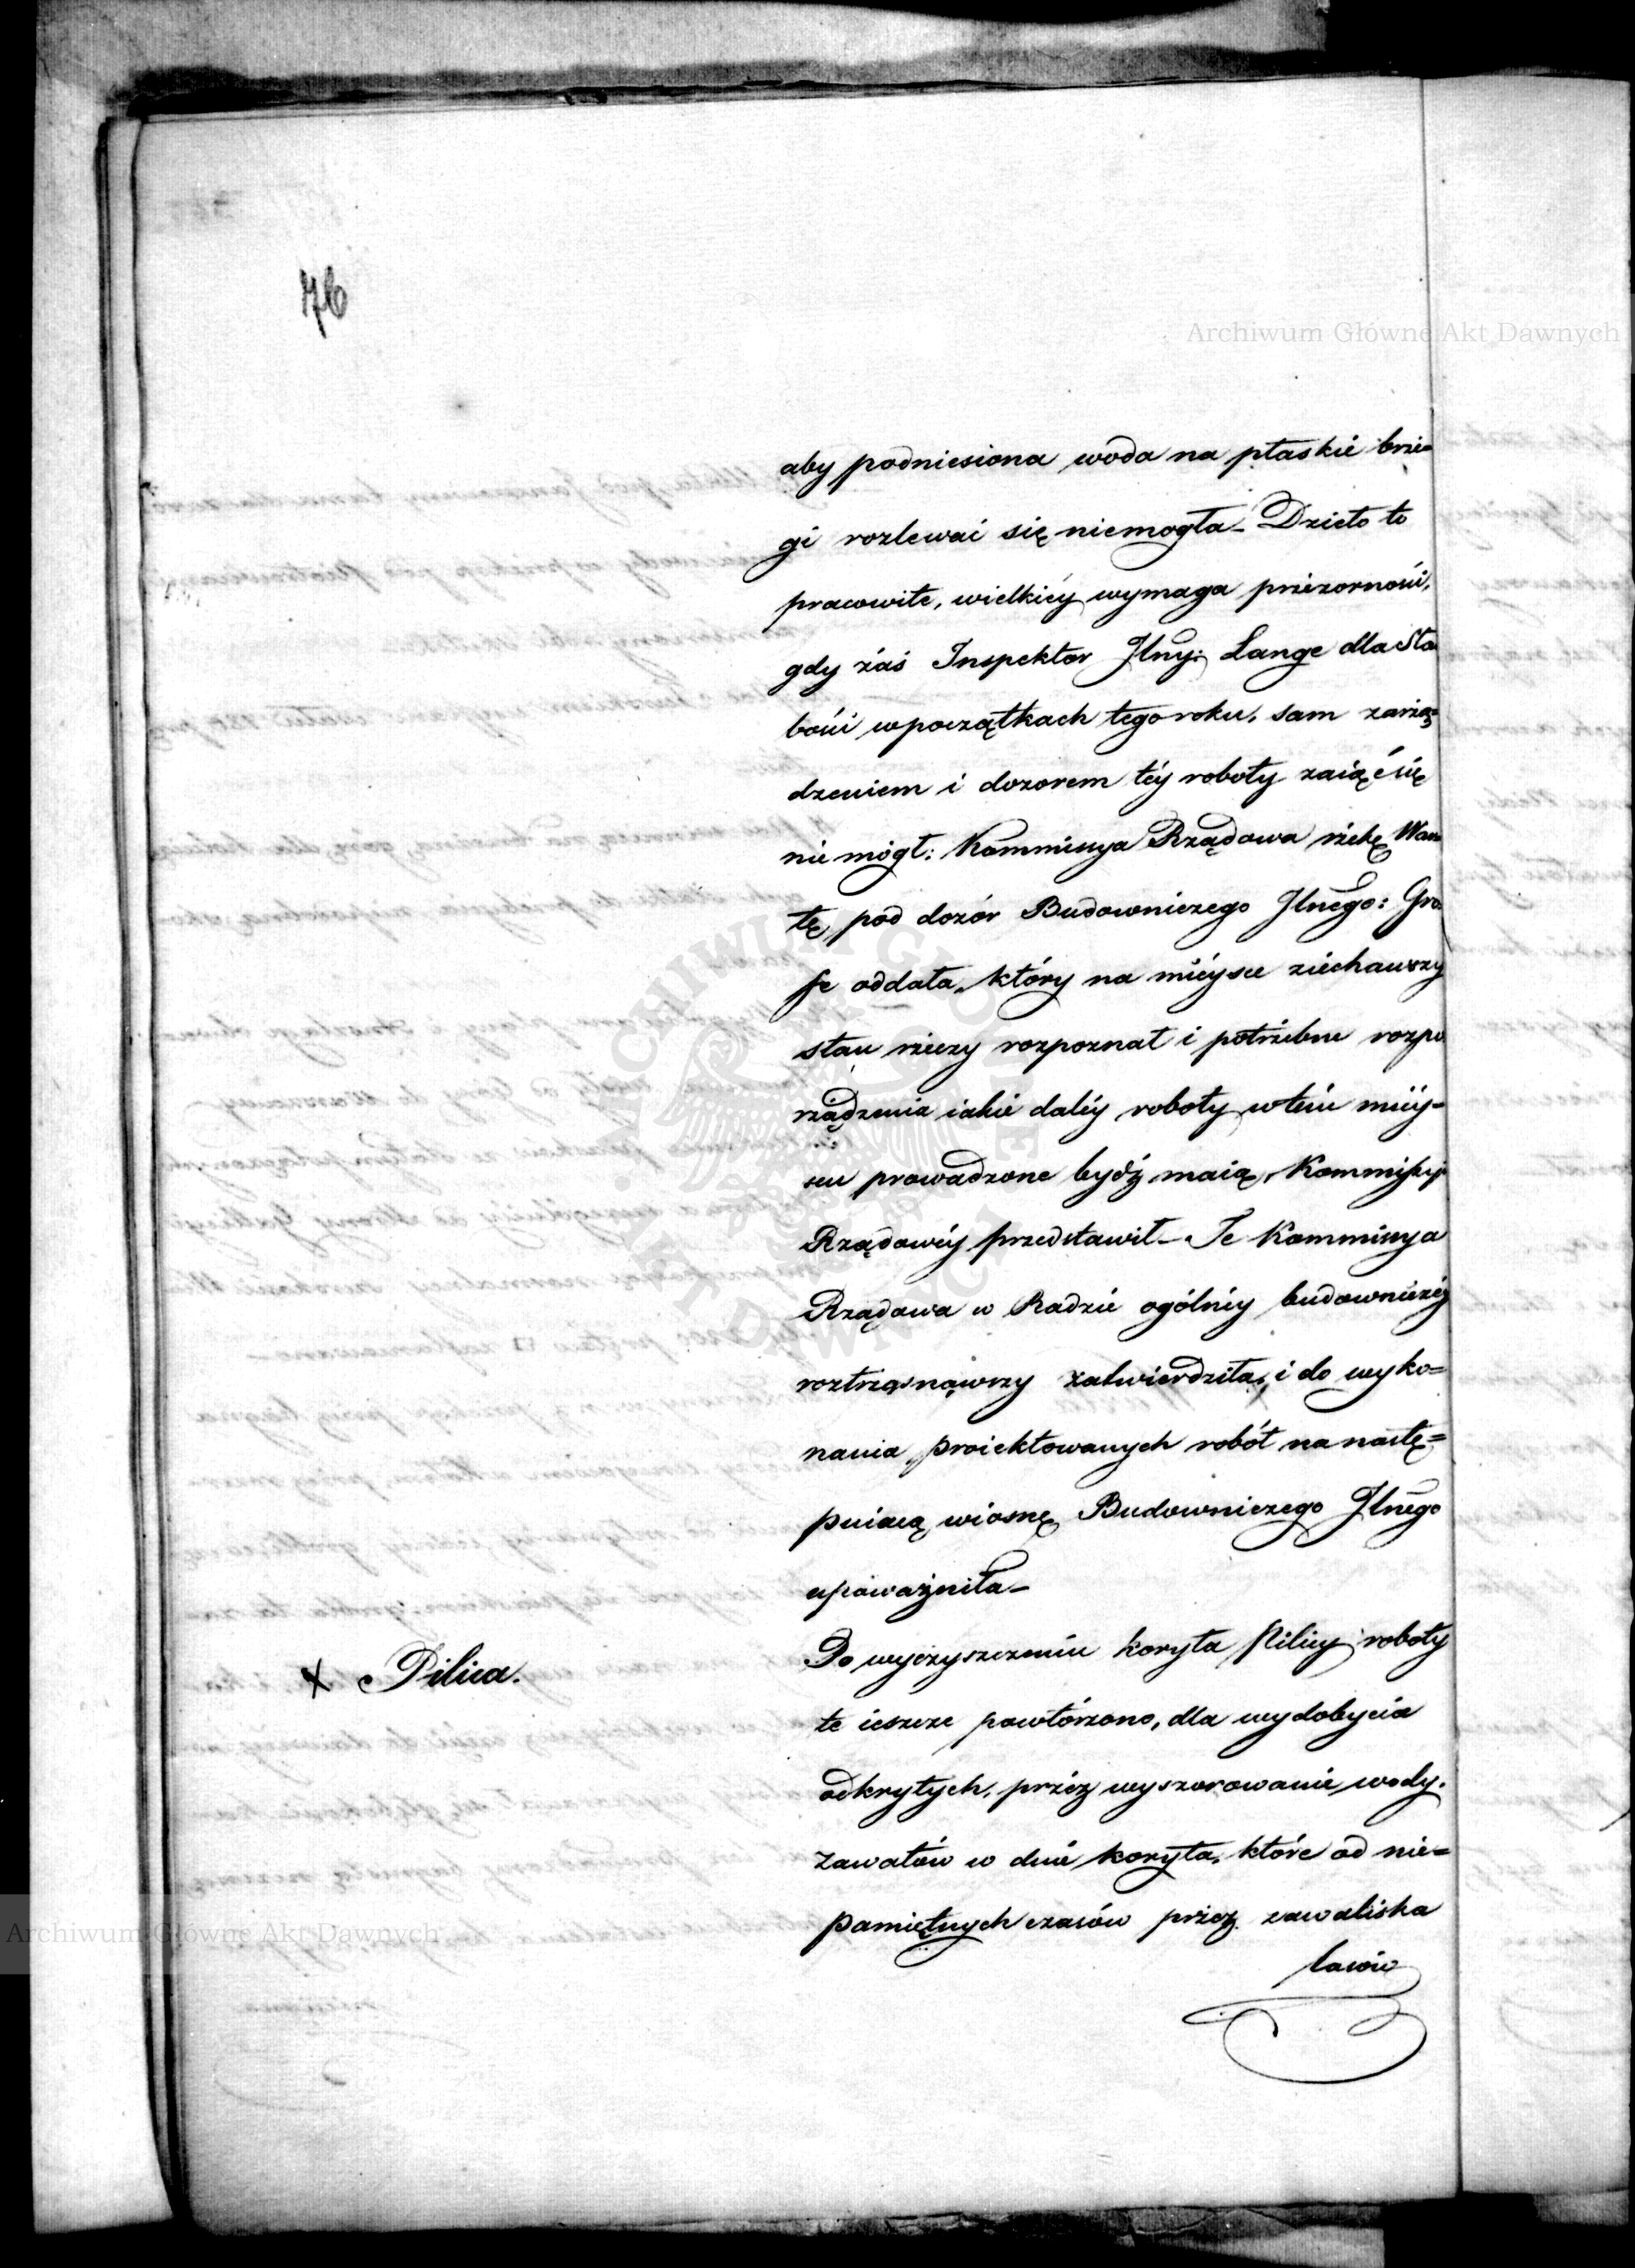 76
Archiwum Główne Akt Dawnych
aby podniesiona woda na płaskie brze=
gi rozlewać się niemogła_ Dzieło to
pracowite, wielkiéy wymaga przezorności,
gdy zaś Inspektor Jlny: Lange dla Sła
bości wpoczątkach tego roku, sam zarzą=
dzeniem i dozorem téy roboty zaiąć się
nie mógł: Kommissya Rządowa rzekę War=
tę, pod dozór Budowniczego Jlnego: Gro
se oddała, który na mieysce ziechawszy
stan rzeczy rozpoznał i potrzebne rozpo
rządzenia iakie daléy roboty wtém miey=
scu prowadzone bydź maią, Kommissyi
Rządowéy przedstawił_ Te Kommissya
Rządowa w Radzie ogólnéy budowniczéy
roztrząsnąwszy zatwierdziła, i do wyko=
nania proiektowanych robót na nastę=
puiącą wiosnę Budowniczego Jlnego
upoważniła_
X Pilica.
Po wyczyszczeniu koryta Pilicy roboty
te ieszcze powtórzono, dla wydobycia
odkrytych, przéz wyszorowanie wody,
zawałów w dnie koryta, które od nie=
pamiętnych czasów przez zawaliska
Archiwum Główne Akt Dawnych
ARCHIWUM GŁÓWNE AKT DAWNYCH